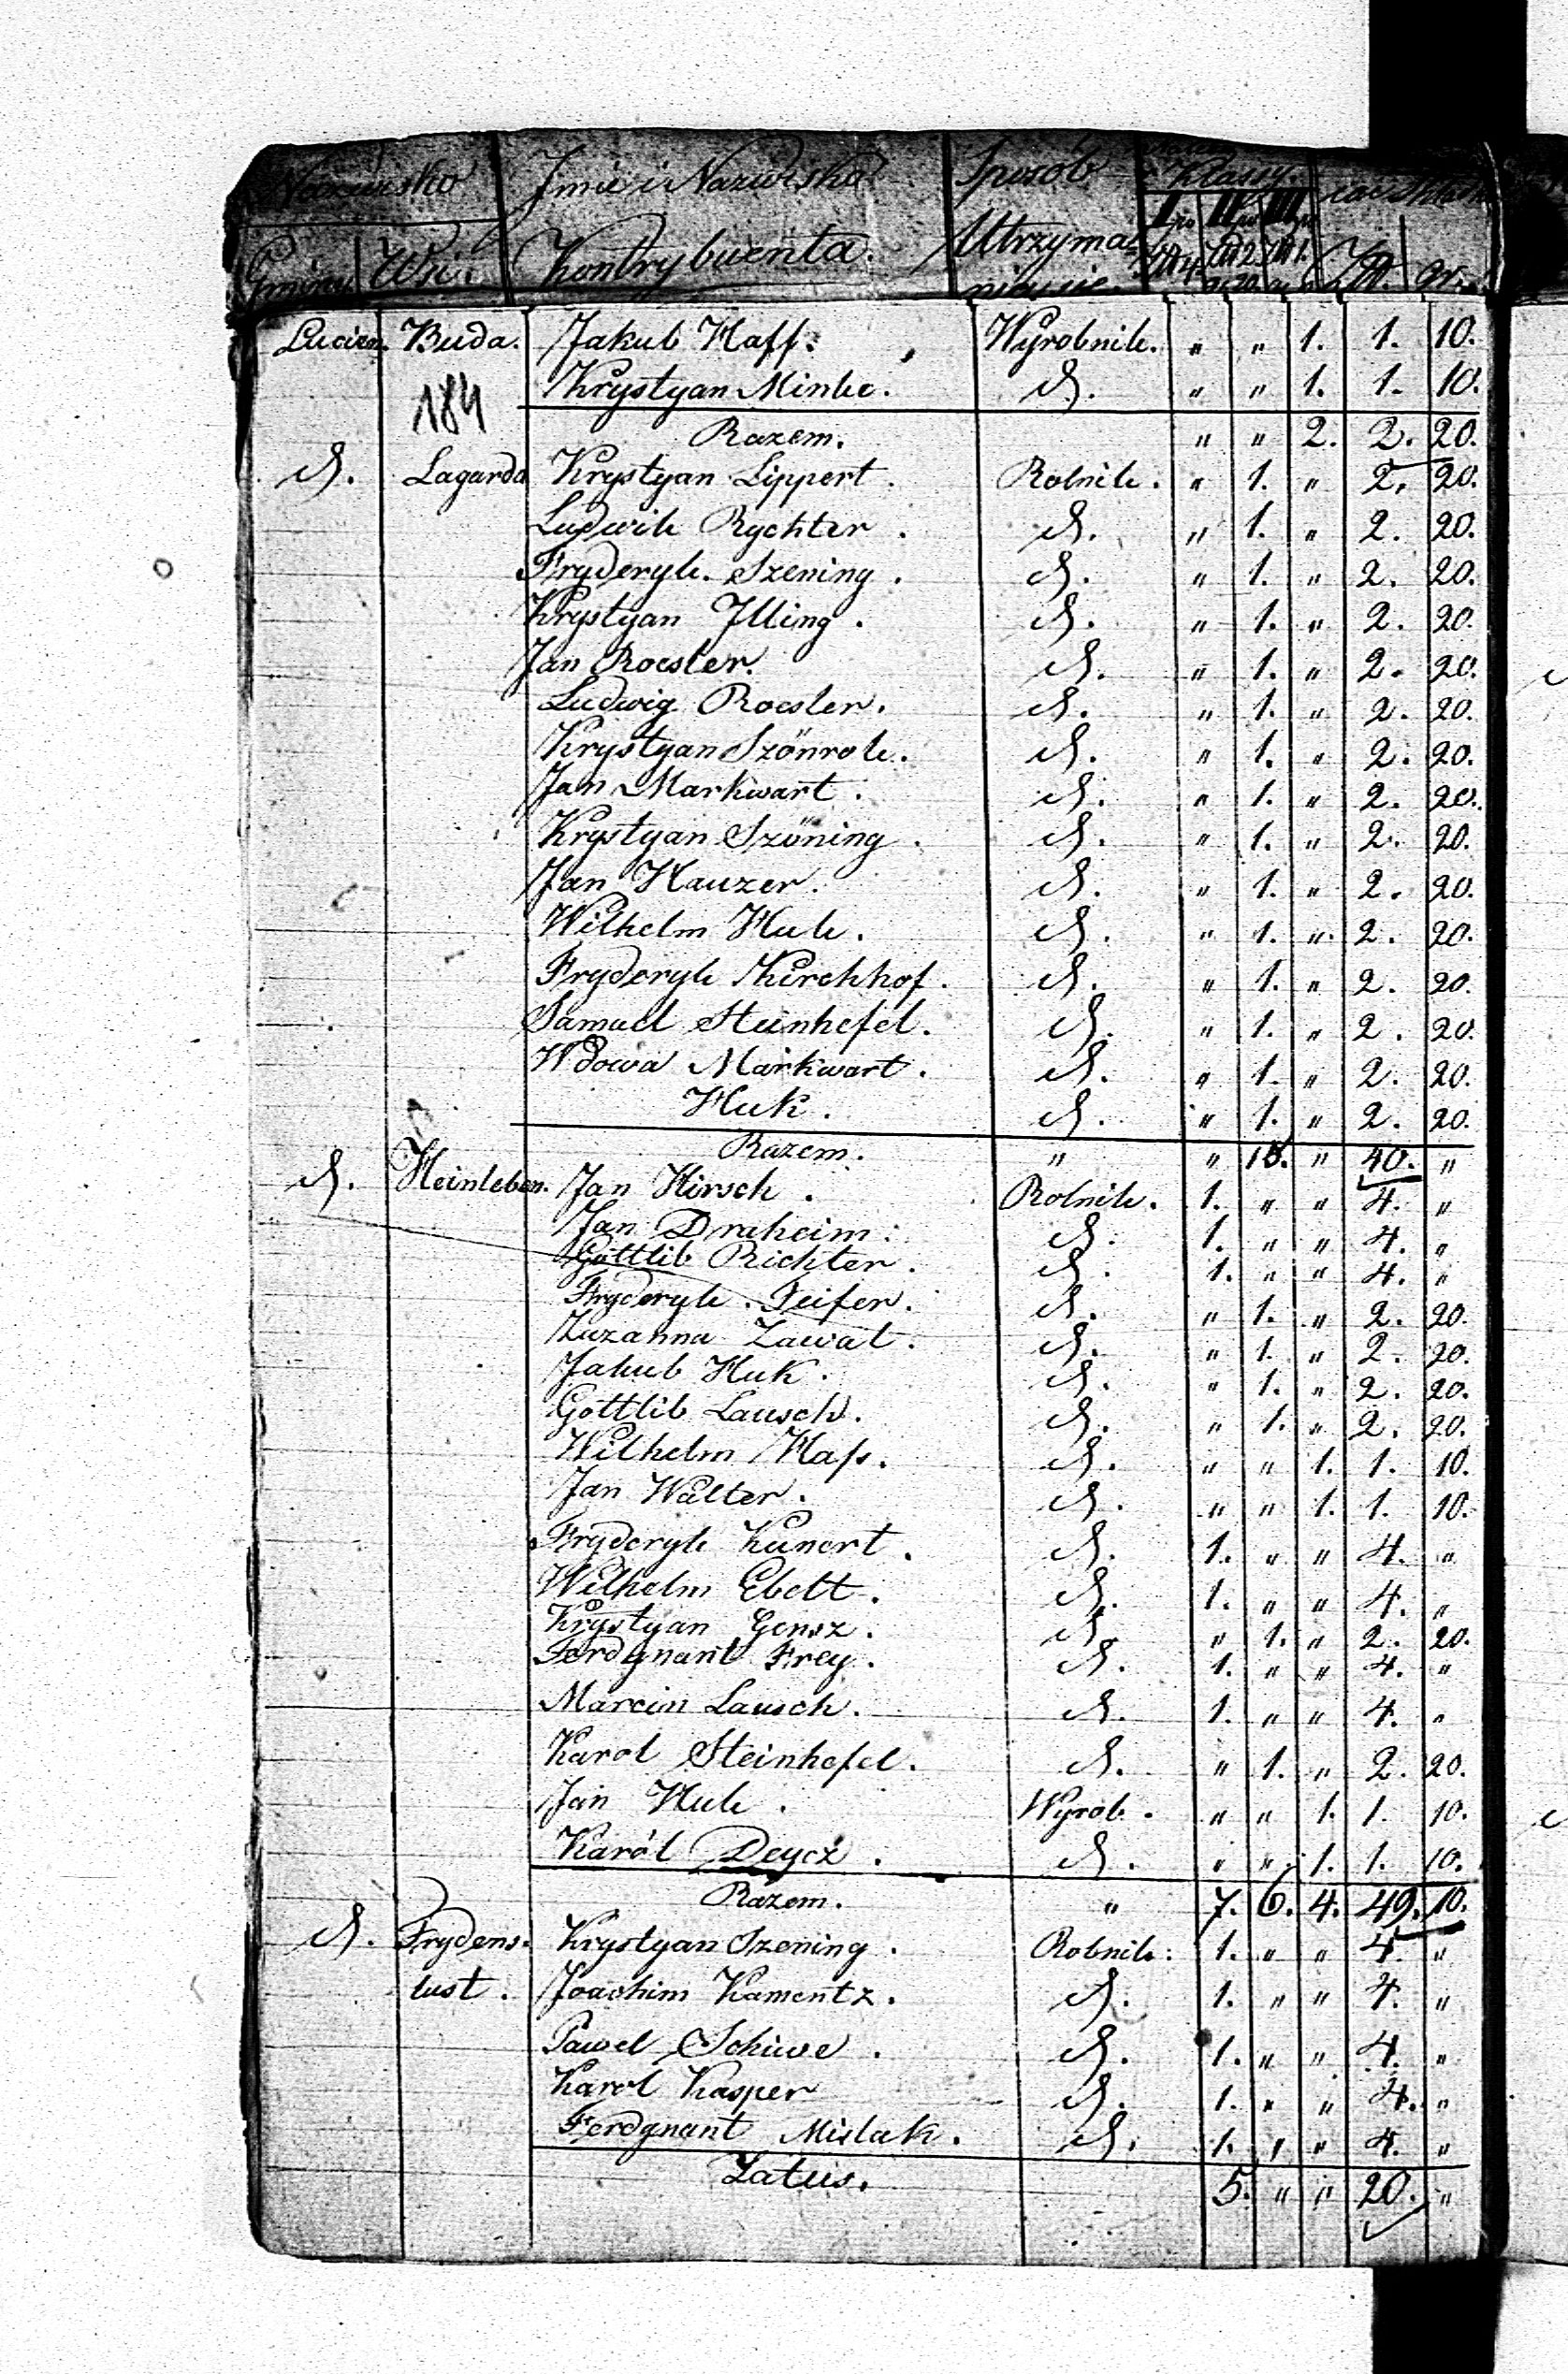 Nazwisko Imie i Nazwisko Sposób Klassy.
Gminy Wsi. Kontrybuenta. Utrzyma- I II III Zł. gr.
Lucień. Buda. Jakub Haff. Wyrobnik. " " 1. 1. 10.
Krystyan Minke. d. " " 1. 1. 10.
184
Razem. " " 2. 2. 20.
d. Lagarda Krystyan Lippert. Rolnik. " 1. " 2. 20.
Ludwik Rychter. d. " 1. " 2. 20.
Fryderyk Szening. d. " 1. " 2. 20.
Krystyan Illing. d. " 1. " 2. 20.
Jan Roesler. d. " 1. " 2. 20.
Ludwig Roesler. d. " 1. " 2. 20.
Krystyan Szönrok. d. " 1. " 2. 20.
Jan Markwart. d. " 1. " 2. 20.
Krystyan Szöning. d. " 1. " 2. 20.
Jan Hauzer. d. " 1. " 2. 20.
Wilhelm Huk. d. " 1. " 2. 20.
Fryderyk Kirchhof. d. " 1. " 2. 20.
Samuel Steinhefel. d. " 1. " 2. 20.
Wdowa Markwart. d. " 1. " 2. 20.
Huk. d. " 1. " 2. 20.
Razem. " " 15. " 40. "
d. Heinleben. Jan Hirsch. Rolnik. 1. " " 4. "
Jan Draheim. d. 1. " " 4. "
Gottlib Richter. d. 1. " " 4. "
Fryderyk Feifer. d. " 1. " 2. 20.
Zuzanna Zawal. d. " 1. " 2. 20.
Jakub Huk. d. " 1. " 2. 20.
Gottlib Lausch. d. " 1. " 2. 20.
Wilhelm Hafs. d. " " 1. 1. 10.
Jan Walter. d. " " 1. 1. 10.
Fryderyk Kunert. d. 1. " " 4. "
Wilhelm Ebelt. d. 1. " " 4. "
Krystyan Gensz. d. " 1. " 2. 20.
Ferdynant Frey. d. 1. " " 4. "
Marcin Lausch. d. 1. " " 4. "
Karol Steinhefel. d. " 1. " 2. 20.
Jan Huk. Wyrob. " " 1. 1. 10.
Karól Deycz. d. " " 1. 1. 10.
Razem. " 7. 6. 4. 49. 10.
d. Frydens- Krystyan Szening. Rolnik. 1. " " 4. "
lust. Joachim Kamentz. d. 1. " " 4. "
Pawel Schiwe. d. 1. " " 4. "
Karol Kasper d. 1. " " 4. "
Ferdynant Mislak. d. 1. " " 4. "
Latus. 5. " " 20. "